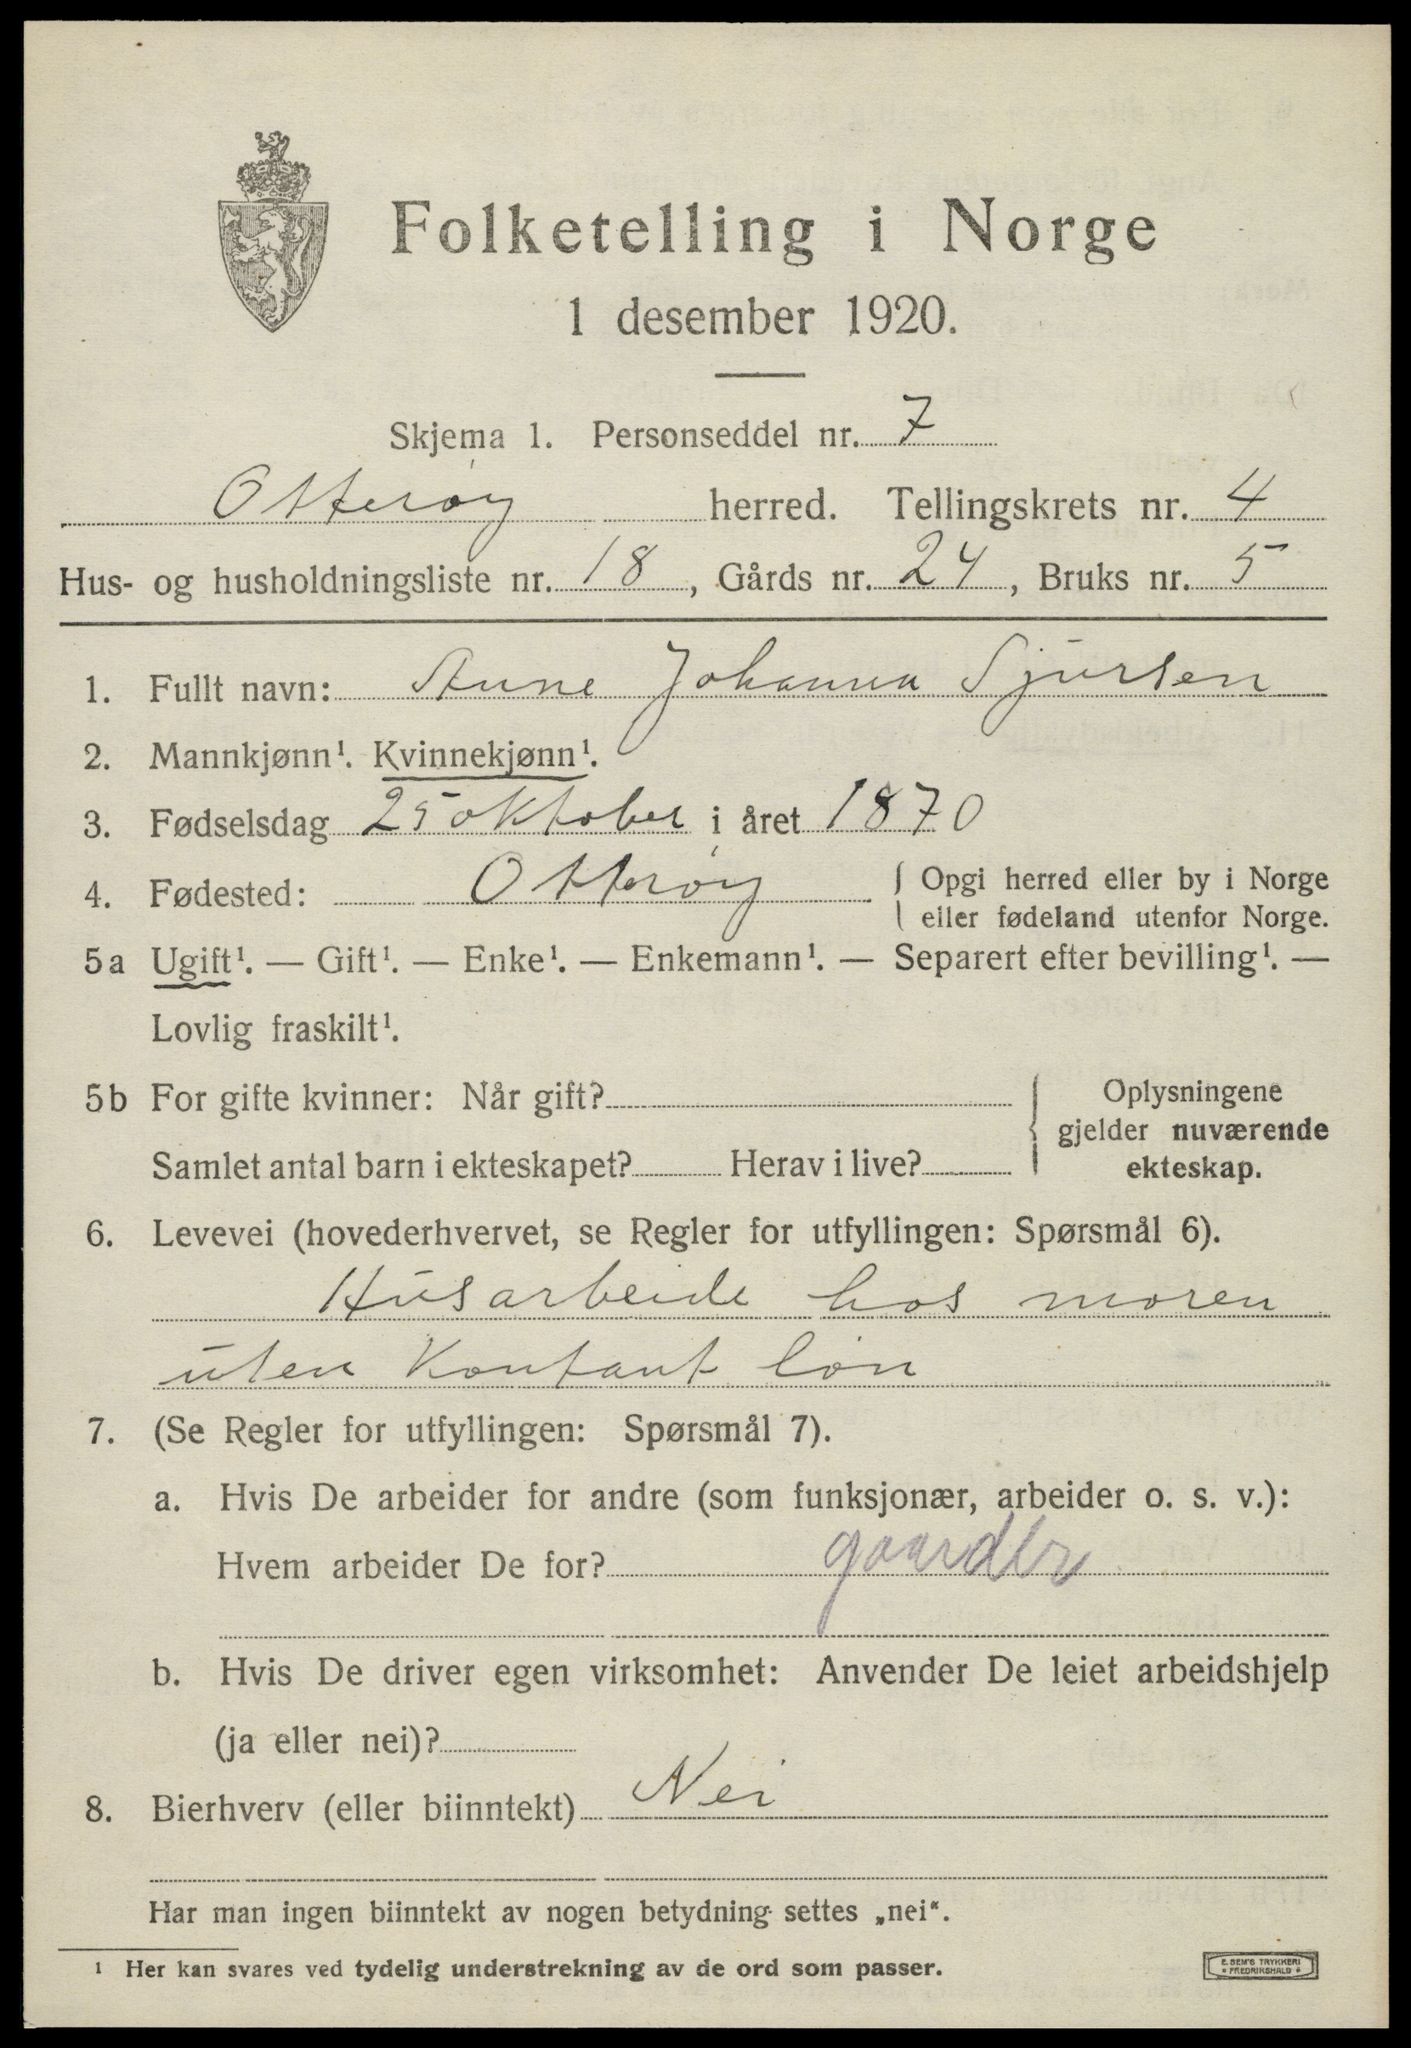 Folketelling i Norge
1 desember 1920.
Skjema 1. Personseddel nr. 7
Otterøy herred. Tellingskrets nr. 4
Hus- og husholdningsliste nr. 18, Gårds nr. 24, Bruks nr. 5
1. Fullt navn: Anne Johanna Sjursen
2. Mannkjønn¹. Kvinnekjønn¹.
3. Fødselsdag 25 oktober i året 1870
4. Fødested: Otterøy { Opgi herred eller by i Norge
eller fødeland utenfor Norge.
5a Ugift¹. — Gift¹. — Enke¹. — Enkemann¹. — Separert efter bevilling¹. —
Lovlig fraskilt¹.
5b For gifte kvinner: Når gift?
Samlet antal barn i ekteskapet? Herav i live?
{ Oplysningene
gjelder nuværende
ekteskap.
6. Levevei (hovederhvervet, se Regler for utfyllingen: Spørsmål 6).
Husarbeide hos moren
uten Kontant løn
7. (Se Regler for utfyllingen: Spørsmål 7).
a. Hvis De arbeider for andre (som funksjonær, arbeider o. s. v.):
Hvem arbeider De for? gaardbr
b. Hvis De driver egen virksomhet: Anvender De leiet arbeidshjelp
(ja eller nei)?
8. Bierhverv (eller biinntekt) Nei
Har man ingen biinntekt av nogen betydning settes „nei“.
¹ Her kan svares ved tydelig understrekning av de ord som passer.
E. SEM'S TRYKKERI
* FREDRIKSHALD *